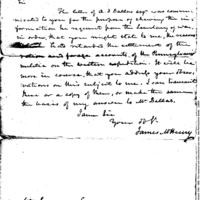 Sir
The letter of A J Dallas esqr was commu-
nicated to you for the purpose of shewing the in-
formation he required from the Secretary of war,
in order that you might state to me, the
facts retards the settlement of the
rations and forage accounts of the Pennsylvania
militia on the western expedition. It will be
more in course, that you address your obser-
vations on this subject to me, I can transmit
these or a copy of them, or make the same
the basis of my answer to Mr Dallas.
I am Sir
Your
James McHenry